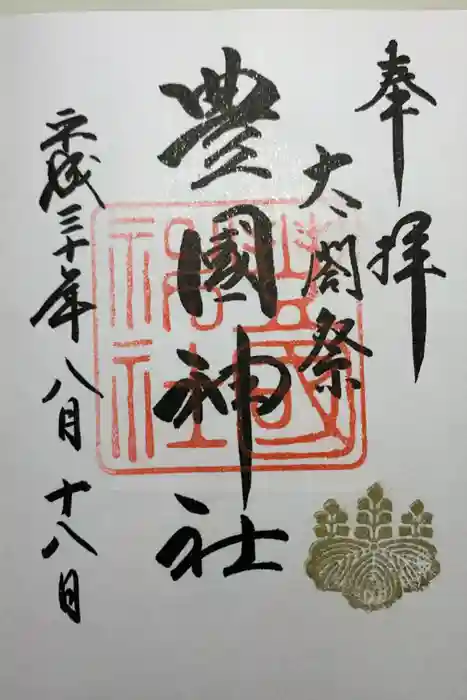 奉拝
太閤祭
豐國神社
平成三十年八月十八日
豐國神社